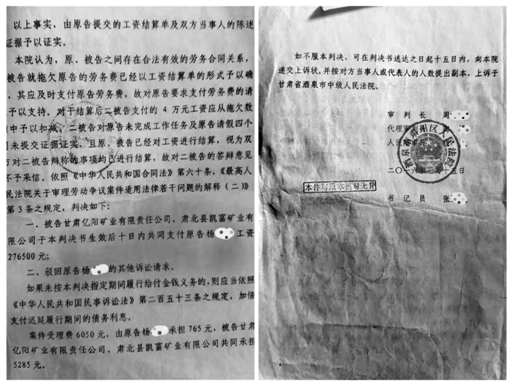 以上事实，由原告提交的工资结算单及双方当事人的陈述
证据予以证实。
本院认为，原、被告之间存在合法有效的劳务合同关系，
被告就拖欠原告的劳务费已经以工资结算单的形式予以确
，其应及时支付原告劳务费，故对原告要求支付劳务费的请
予以支持。对于结算后二被告支付的 4 万元工资应从拖欠数
中予以扣减，二被告对原告未完成工作任务及原告请假四个
未提交证据证实，且原、被告已经对工资进行结算，视为双
方对二被告辩称的事项均已进行结算，故对二被告的答辩意见
不予采信。依照《中华人民共和国合同法》第六十条，《最高人
民法院关于审理劳动争议案件适用法律若干问题的解释（二）》
第 3 条之规定，判决如下：
一、被告甘肃亿阳矿业有限责任公司、肃北县凯富矿业有
限公司于本判决书生效后十日内共同支付原告杨 工资
276500 元；
二、驳回原告杨 的其他诉讼请求。
如果未按本判决指定期间履行给付金钱义务的，则应当依照
《中华人民共和国民事诉讼法》第二百五十三条之规定，加倍
支付迟延履行期间的债务利息。
案件受理费 6050 元，由原告杨 承担 765 元，被告甘肃
亿阳矿业有限责任公司、肃北县凯富矿业有限公司共同承担
5285 元。
如不服本判决，可在判决书送达之日起十五日内，向本院
递交上诉状，并按对方当事人或代表人的人数提出副本，上诉于
甘肃省酒泉市中级人民法院。
审 判 长 周
代理
人民
二〇一六 五日
本件与原本核对无异
书 记 员 张